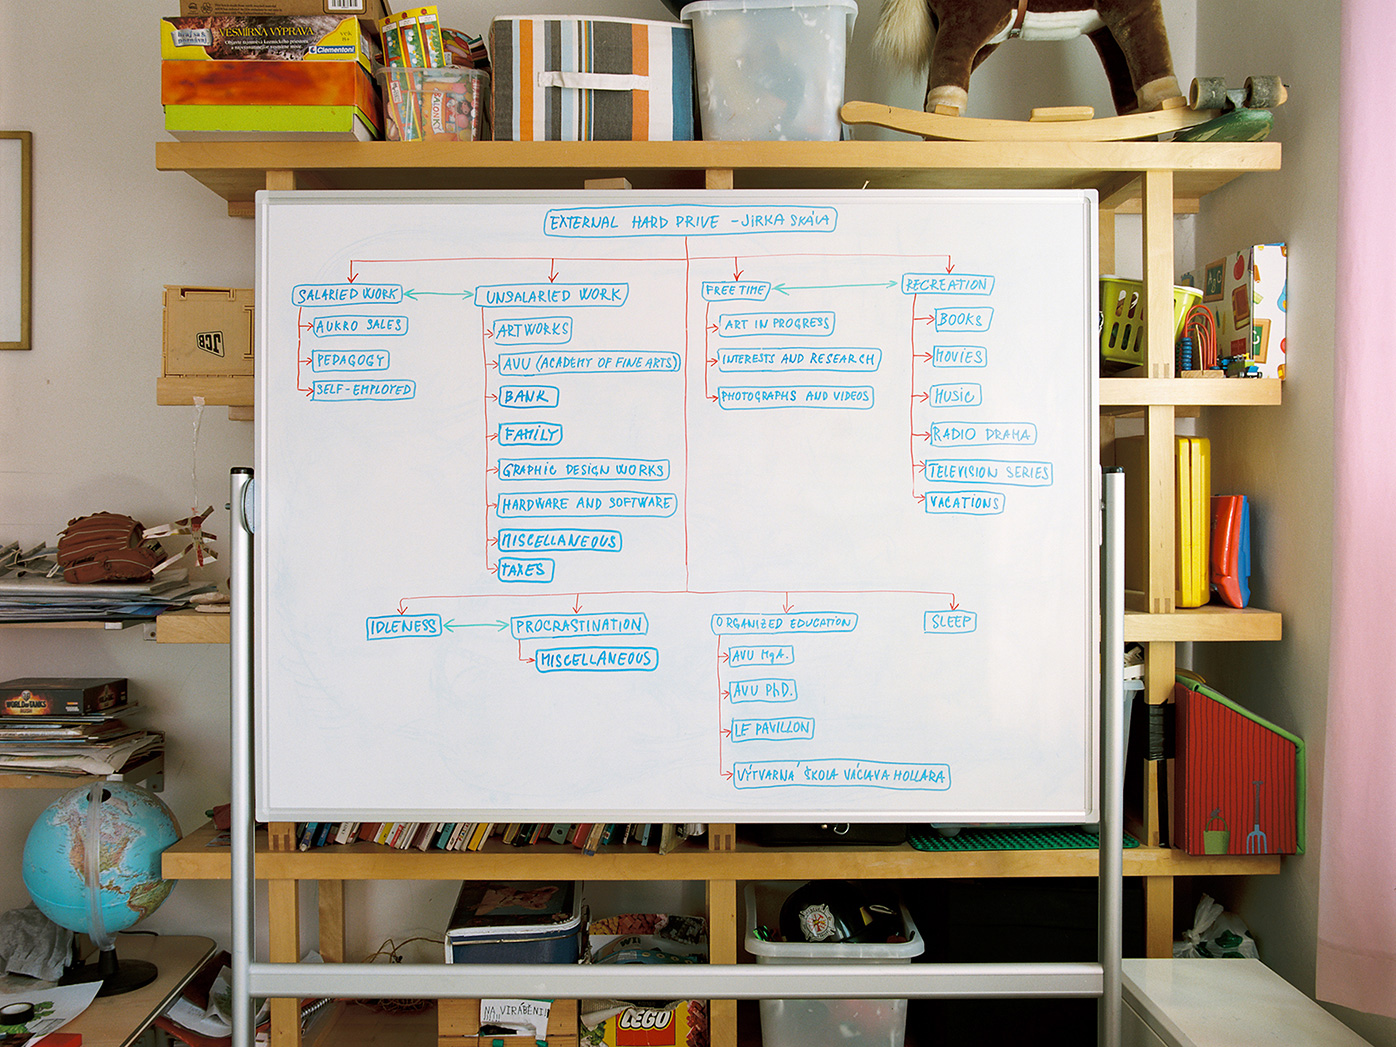 VESMÍRNÁ VÝPRAVA
Clementoni
EXTERNAL HARD DRIVE - JIRKA SKÁLA
SALARIED WORK
AUKRO SALES
PEDAGOGY
SELF-EMPLOYED
UNSALARIED WORK
ARTWORKS
AVU (ACADEMY OF FINE ARTS)
BANK
FAMILY
GRAPHIC DESIGN WORKS
HARDWARE AND SOFTWARE
MISCELLANEOUS
TAXES
FREE TIME
ART IN PROGRESS
INTERESTS AND RESEARCH
PHOTOGRAPHS AND VIDEOS
RECREATION
BOOKS
MOVIES
MUSIC
RADIO DRAMA
TELEVISION SERIES
VACATIONS
IDLENESS
PROCRASTINATION
MISCELLANEOUS
ORGANIZED EDUCATION
AVU MgA.
AVU PhD.
LE PAVILLON
VÝTVARNÁ ŠKOLA VÁCLAVA HOLLARA
SLEEP
JCB
WORLD OF TANKS
NA VYRÁBĚNÍ!
LEGO